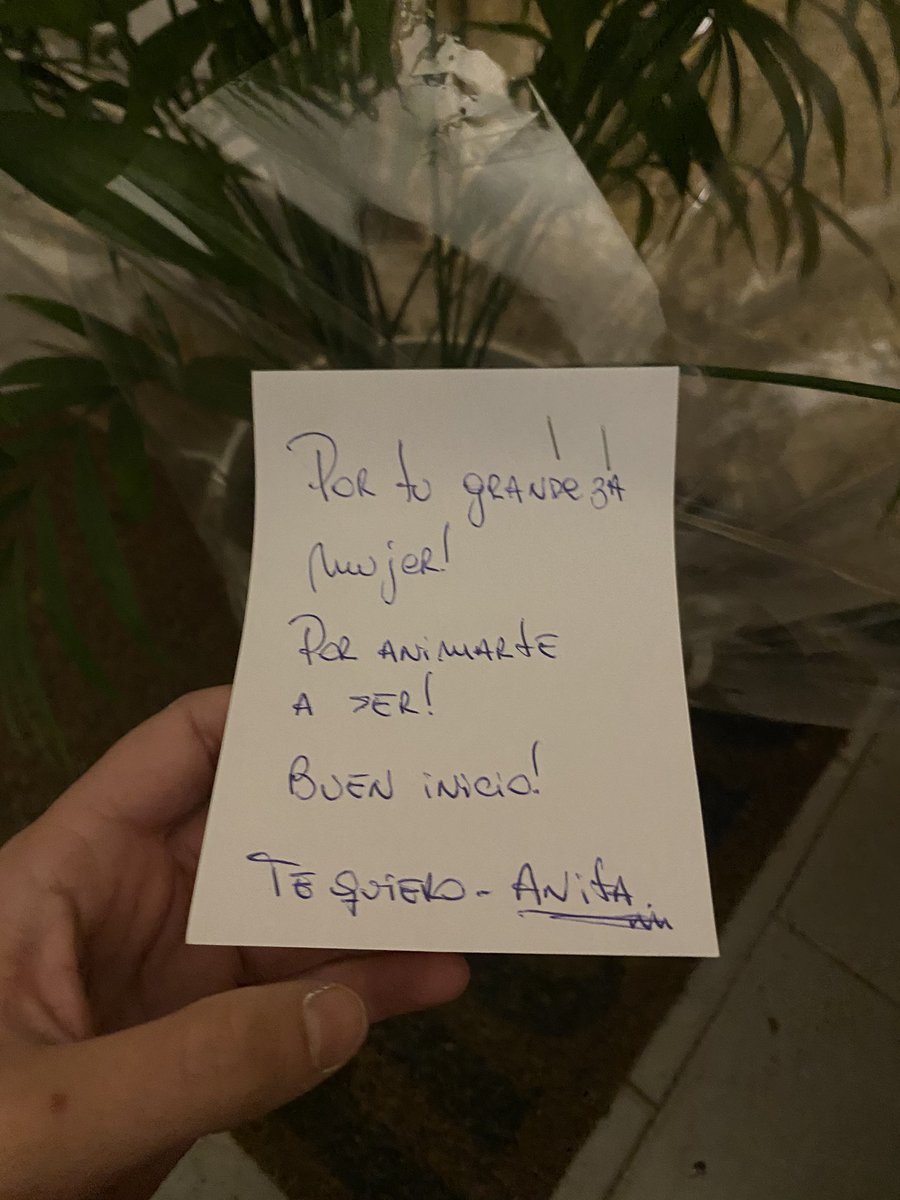 Por tu grandeza
mujer!
Por animarte
a ser!
Buen inicio!
Te quiero - Anita.